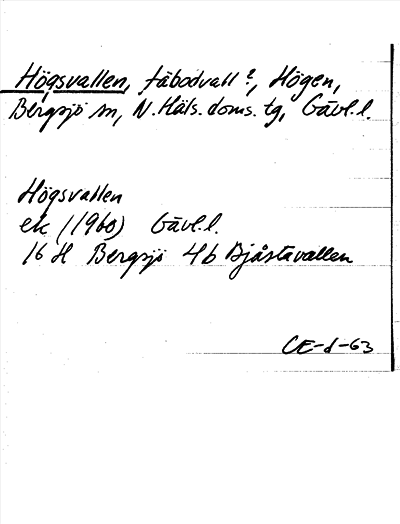 Högsvallen, fäbodvall?, Högen,
Bergsjö sn, N. Häls. doms. tg, Gävl.l.
Högsvallen
ek (1960) Gävl.l.
16 H Bergsjö 4b Bjåstavallen
CE-d-63